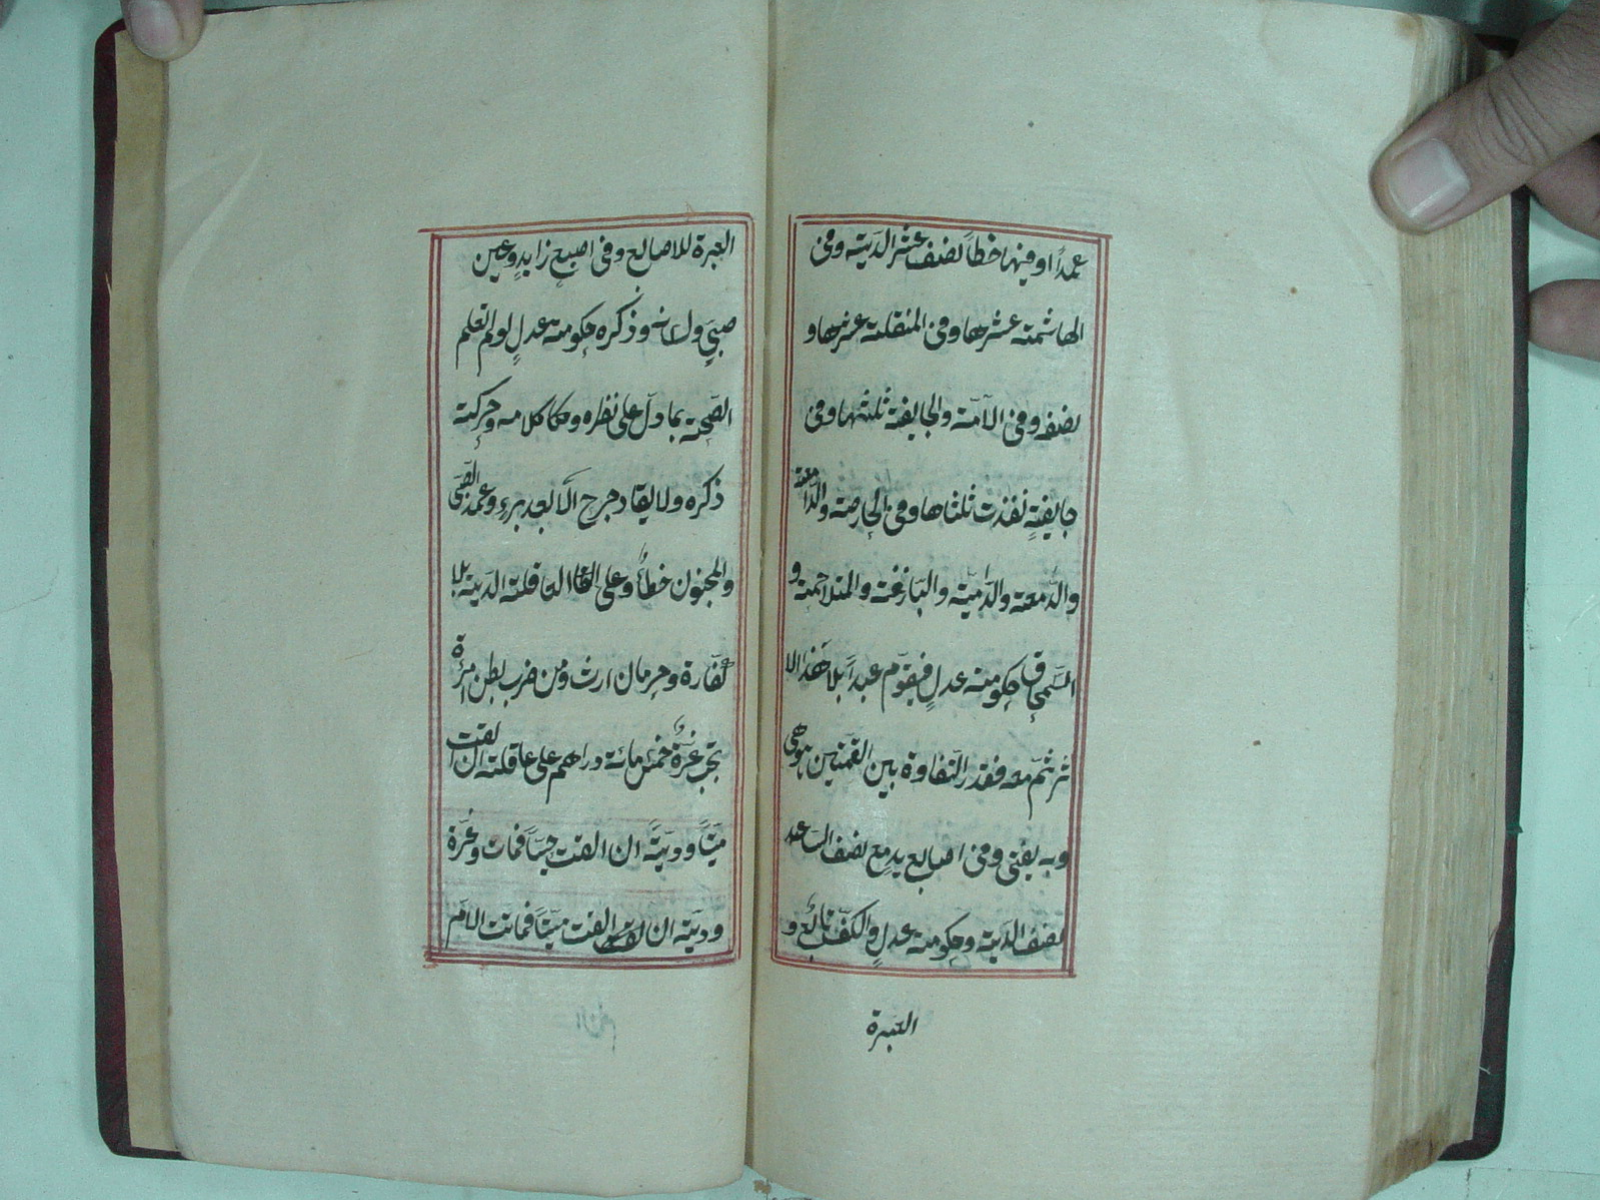 عمداً او فيها خطأً نصف عشر الدّية وفى
الهاشمة عشرها وفى المنقلة عشرها و
نصفه وفى الآمّة والجايفة ثلثها وفى
جايفةٍ نفذت ثلثاها وفى الحارصة والدّامغة
والدّمعة والدّامية والبازغت والمتلاحمة و
السّمحاق حكومة عدلٍ فيقوّم عبداً بلا هذا الا
ثر ثمّ معه فقدر التّفاوة بين القمنين ما هى
وبه يفتى وفى اصابع يدٍ مع نصف السّاعد
نصف الدّية وحكومة عدلٍ والكفّ تابع و
العبرة
العبرة للاصابع وفى اصبع زايدٍ وعين
صبىٍّ ولسانه وذكره حكومة عدلٍ لو لم تعلم
الصّحة بما دلّ على نظره وكلامه وحركة
ذكره ولا يقاد جرح الّا بعد برءٍ وعمد الصّبى
والمجنون خطأٌ وعلى العاقلة الدّية بلا
كفّارة وحرمان ارث ومن ضرب بطن امرأة
تجب غرّةٌ خمس مائة دراهم على عاقلة ان القت
ميّتاً وديّةٌ ان القت حيّاً فمات وغرّة
وديّة ان القت ميّتاً فماتت الامّ